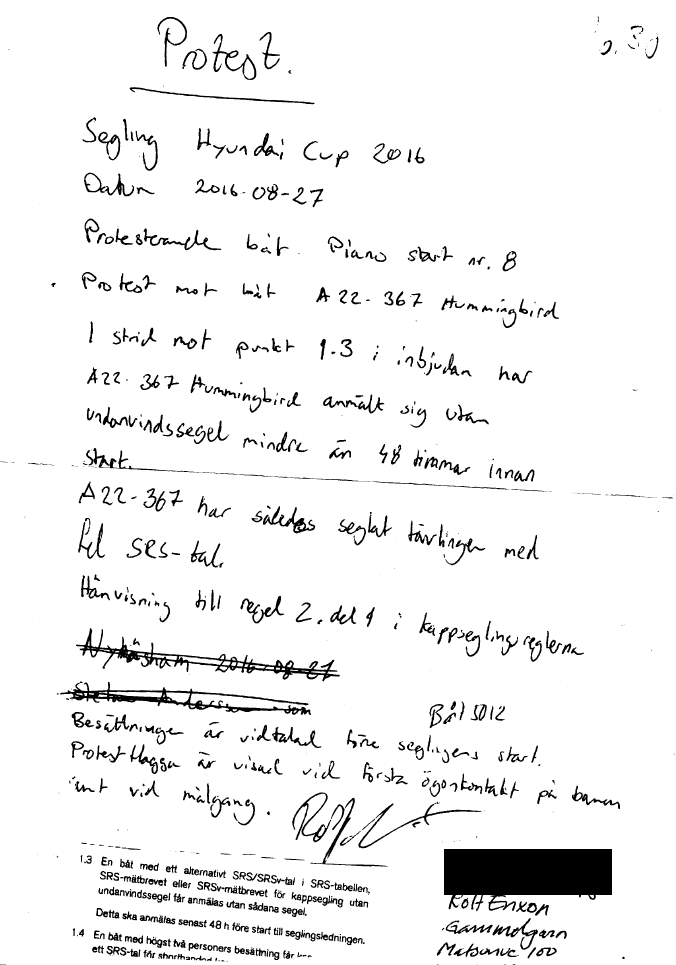 Protest.
Segling Hyundai Cup 2016
Datum 2016-08-27
Protesterande båt. Piano start nr. 8
Protest mot båt A22-367 Hummingbird
I strid mot punkt 1.3 i inbjudan har
A22-367 Hummingbird anmält sig utan
undanvindssegel mindre än 48 timmar innan
start.
A22-367 har således seglat tävlingen med
fel SRS-tal.
Hänvisning till regel 2, del 1 i kappseglingsreglerna
Nynäshamn 2016-08-27
Stefan Andersson som
Båt 5012
Besättningen är vidtalad före seglingens start.
Protestflagga är visad vid första ögonkontakt på banan
samt vid målgång.
1.3 En båt med ett alternativt SRS/SRSv-tal i SRS-tabellen,
SRS-mätbrevet eller SRSv-mätbrevet för kappsegling utan
undanvindssegel får anmälas utan sådana segel.
Detta ska anmälas senast 48 h före start till seglingsledningen.
1.4 En båt med högst två personers besättning får
ett SRS-tal för shorthanded
Rolf Erixon
Gammelgarn